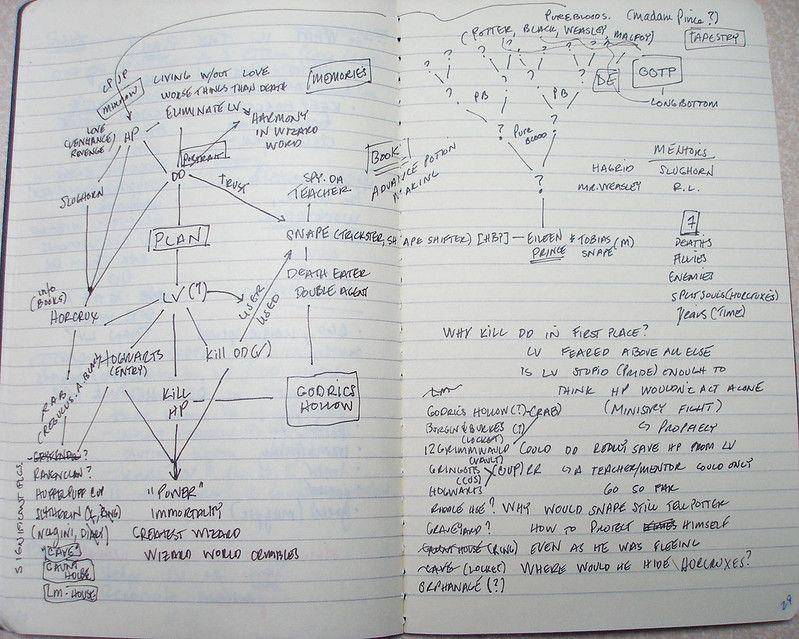 CPUP
MINNOW
LIVING W/OUT LOVE
WORSE THINGS THAN DEATH
MEMORIES
ELIMINATE LV
HP
LOVE
(VENHANCE)
REVENGE
HARMONY
IN WIZARD
WORLD
PORTRAIT
DD
TRUST
SLUGHORN
BOOK
ADVANCE POTION
MAKING
SPY-DA
TEACHER
PLAN
SNAPE (TRICKSTER, SHAPE SHIFTER) [HBP] — EILEEN & TOBIAS (M)
PRINCE SNAPE
DEATH EATER
DOUBLE AGENT
INFO
(BOOKS)
HORCRUX
LV (?)
USER
USED
HOGWARTS
(ENTRY)
KILL DD(✓)
KILL
HP
GODRICS
HOLLOW
R.A.B
SIGNIFICANT PLCS
RAVENCLAW?
HUFFLEPUFF CUP
SLYTHERIN (L, RING)
(NAGINI, DIARY)
CAVE
GAUNT
HOUSE
LM-HOUSE
"POWER"
IMMORTALITY
GREATEST WIZARD
WIZARD WORLD CRUMBLES
PUREBLOODS. (MADAM PINCE?)
(POTTER, BLACK, WEASLEY, MALFOY)
TAPESTRY
? ? ? ? ?
? ? ? ?
DE
GOTP
LONGBOTTOM
? PB ? PB ?
? PURE ?
BLOOD
?
MENTORS
HAGRID SLUGHORN
MR. WEASLEY R.L.
7
DEATHS
ALLIES
ENEMIES
SPLIT SOULS (HORCRUXES)
YEARS (TIME)
WHY KILL DD IN FIRST PLACE?
LV FEARED ABOVE ALL ELSE
IS LV STUPID (PRIDE) ENOUGH TO
THINK HP WOULDN'T ACT ALONE
LM
GODRICS HOLLOW (?) - (RAB) (MINISTRY FIGHT)
BORGIN & BURKES (?) ↳ PROPHECY
(LOCKET)
12 GRIMMAULD COULD DD REALLY SAVE HP FROM LV
(VAULT)
GRINGOTS (CUP) RR ↳ A TEACHER/MENTOR COULD ONLY
(COS)
HOGWARTS GO SO FAR
RIDDLE HSE? WHY WOULD SNAPE STILL TELL POTTER
GRAVEYARD? HOW TO PROTECT HIMSELF
GAUNT HOUSE (RING) EVEN AS HE WAS FLEEING
CAVE (LOCKET) WHERE WOULD HE HIDE HORCRUXES?
ORPHANAGE (?)
29